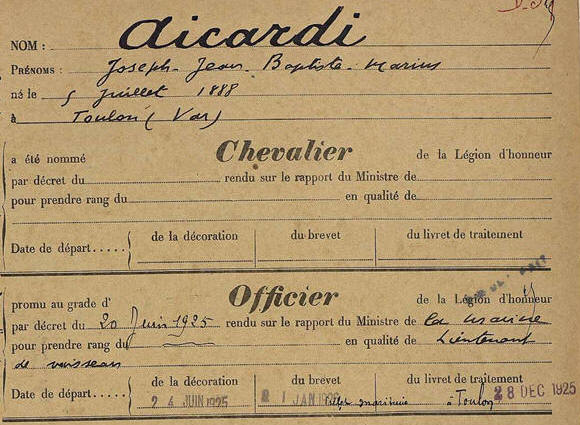 NOM : Aicardi
PRÉNOMS : Joseph Jean Baptiste Marius
né le 5 Juillet 1888
à Toulon (Var)
a été nommé Chevalier de la Légion d'honneur
par décret du rendu sur le rapport du Ministre de
pour prendre rang du en qualité de
Date de départ de la décoration du brevet du livret de traitement
promu au grade d' Officier de la Légion d'honneur
par décret du 20 Juin 1925 rendu sur le rapport du Ministre de la marine
pour prendre rang du en qualité de Lieutenant
de vaisseau
Date de départ de la décoration du brevet du livret de traitement
24 JUIN 1925 21 JAN maritime à Toulon 28 DEC 1925